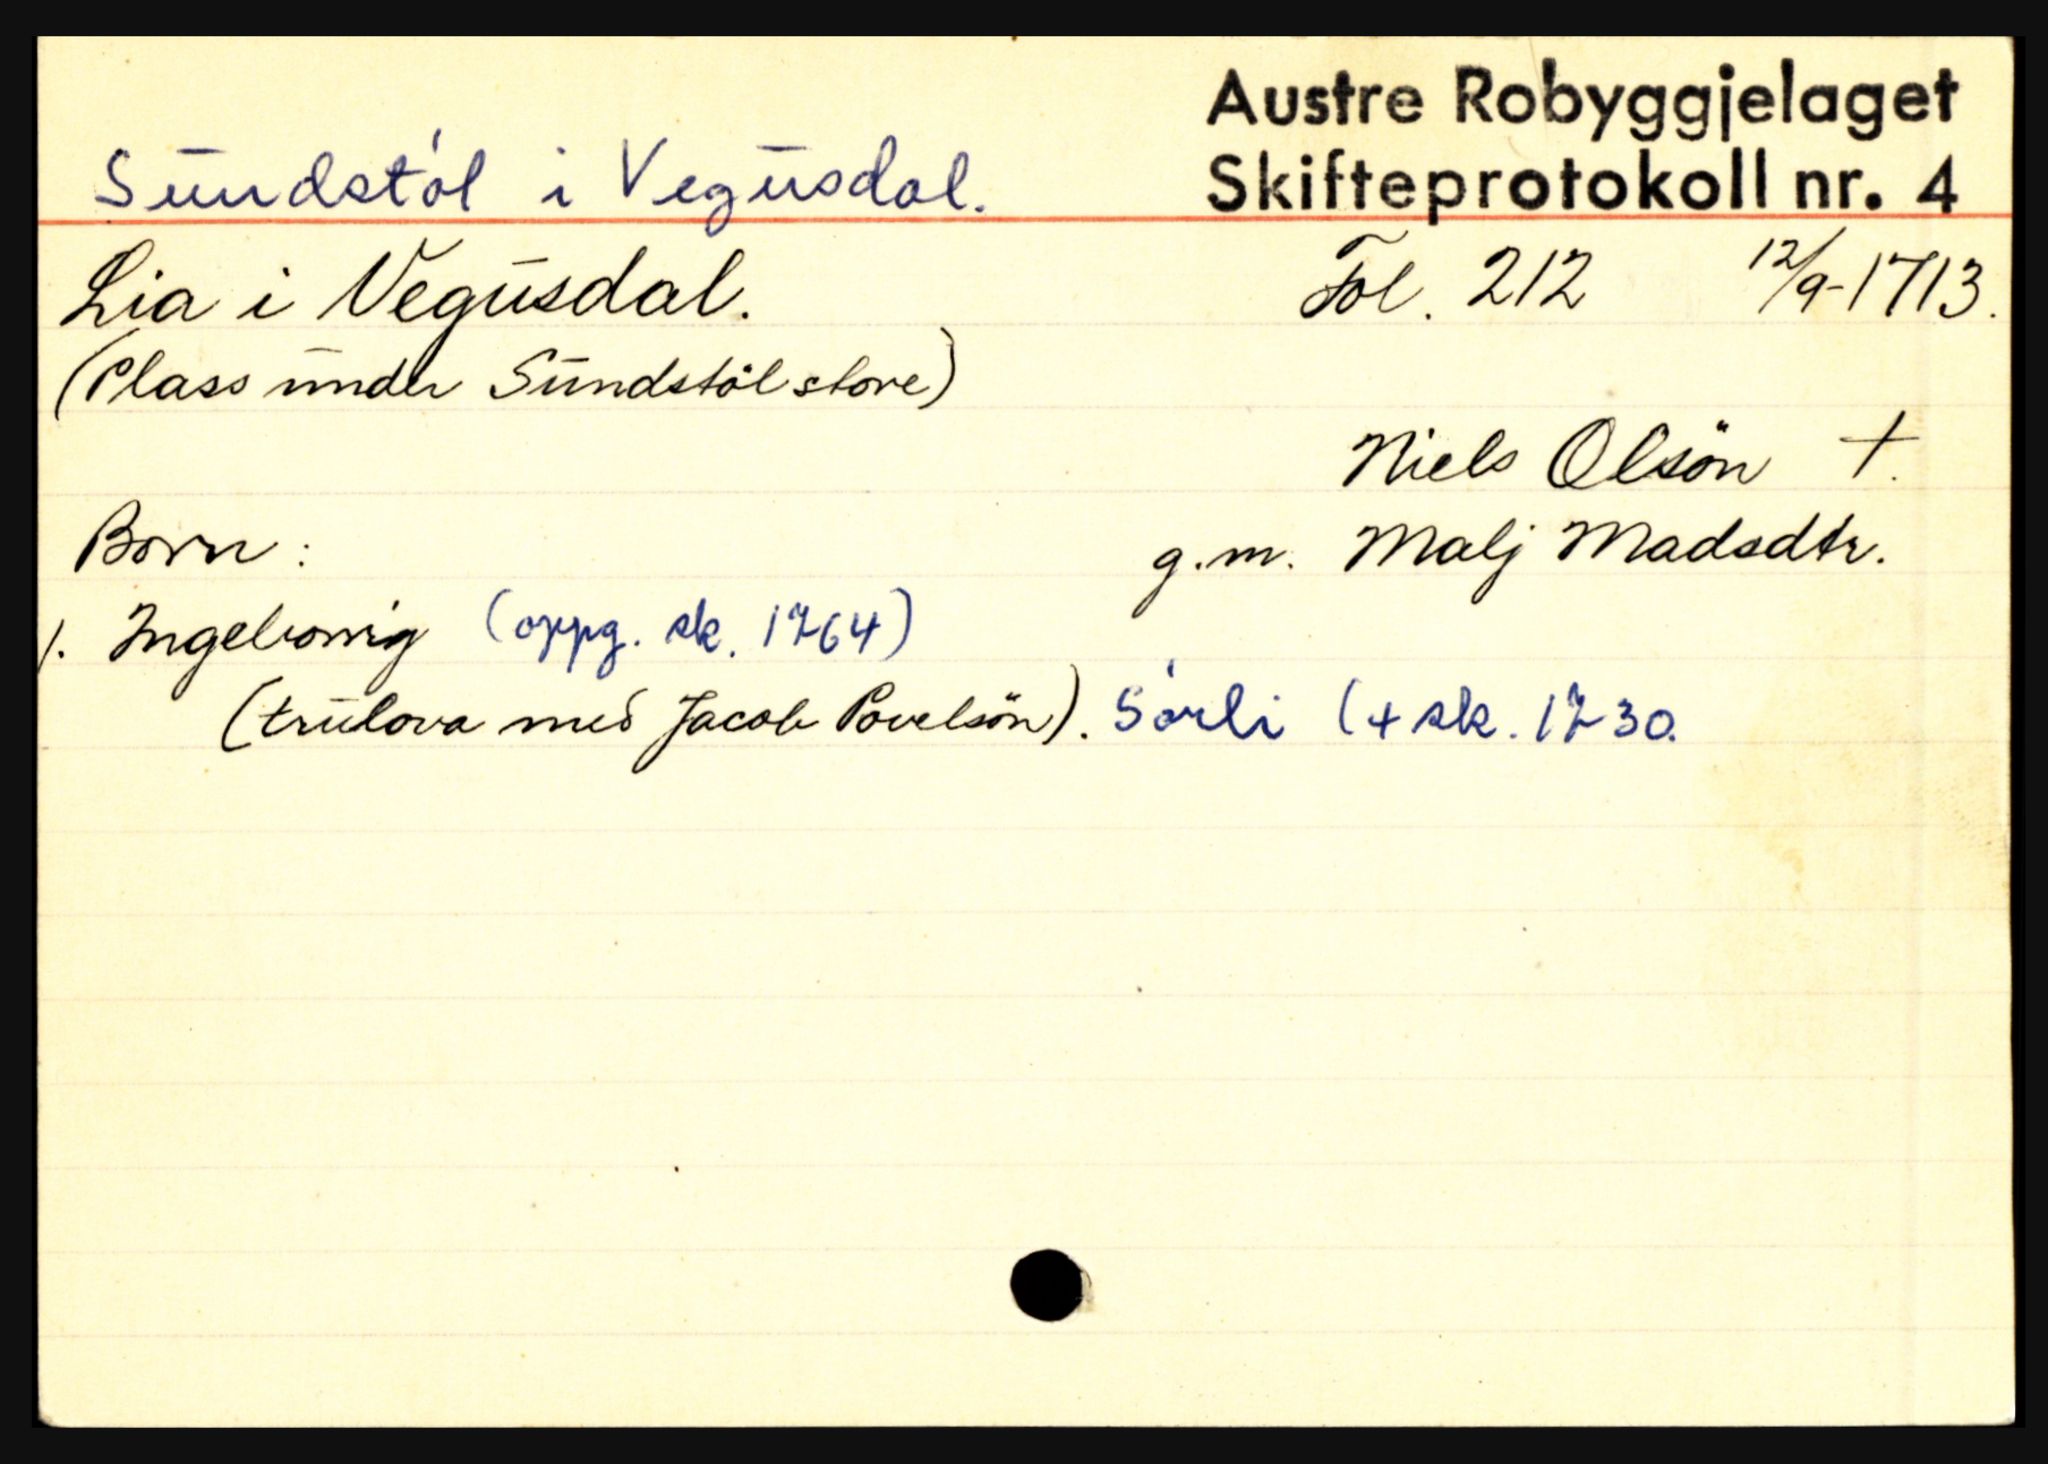 Austre Robyggjelaget
Skifteprotokoll nr. 4
Sundstøl i Vegusdal.
Lia i Vegusdal. Fol. 212 12/9-1713.
(Plass under Sundstöl store)
Niels Olsön +.
Born: g.m. Malj Madsdtr.
1. Ingeborrig (oppg. sk. 1764)
(trulova med Jacob Povelsön). Sørli (+ sk. 1730.